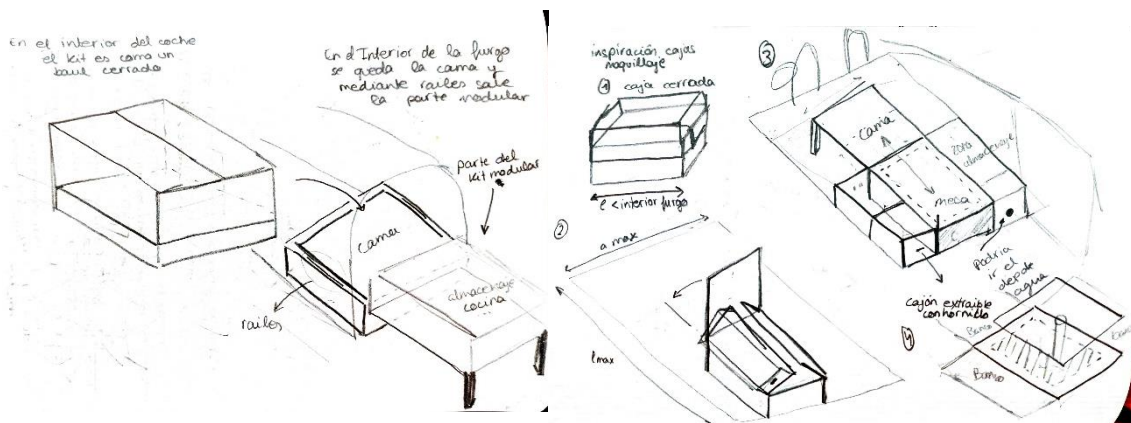 En el interior del coche
el kit es como un
baul cerrado
En el Interior de la furgo
se queda la cama y
mediante railes sale
la parte modular
parte del
kit modular
cama
almacenaje
cocina
railes
inspiración cajas
maquillaje
1 caja cerrada
l < interior furgo
2
a max
l max
3
cama
zona
almacenaje
meca
Podría
ir el
depos
agua
cajón extraible
con hornillo
4
Banco
Banco